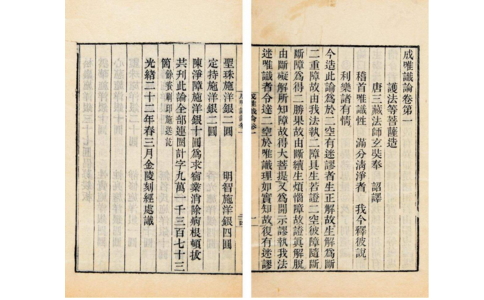 成唯識論卷第一
護法等菩薩造
唐三藏法師玄奘奉　詔譯
稽首唯識性　滿分清淨者　我今釋彼說
利樂諸有情
今造此論為於二空有迷謬者生正解故生解為斷
二重障故由我法執二障具生若證二空彼障隨斷
斷障為得二勝果故由斷續生煩惱障故證真解脫
由斷礙解所知障故得大菩提又為開示謬執我法
迷唯識者令達二空於唯識理如實知故復有迷謬
聖珠施洋銀二圓　明智施洋銀四圓
定持施洋銀二圓
陳淨障施洋銀十圓為求宿業消除病根頓拔
共刊此論全部連圈計字九萬一千三百七十三
箇
光緒二十二年春三月金陵刻經處識